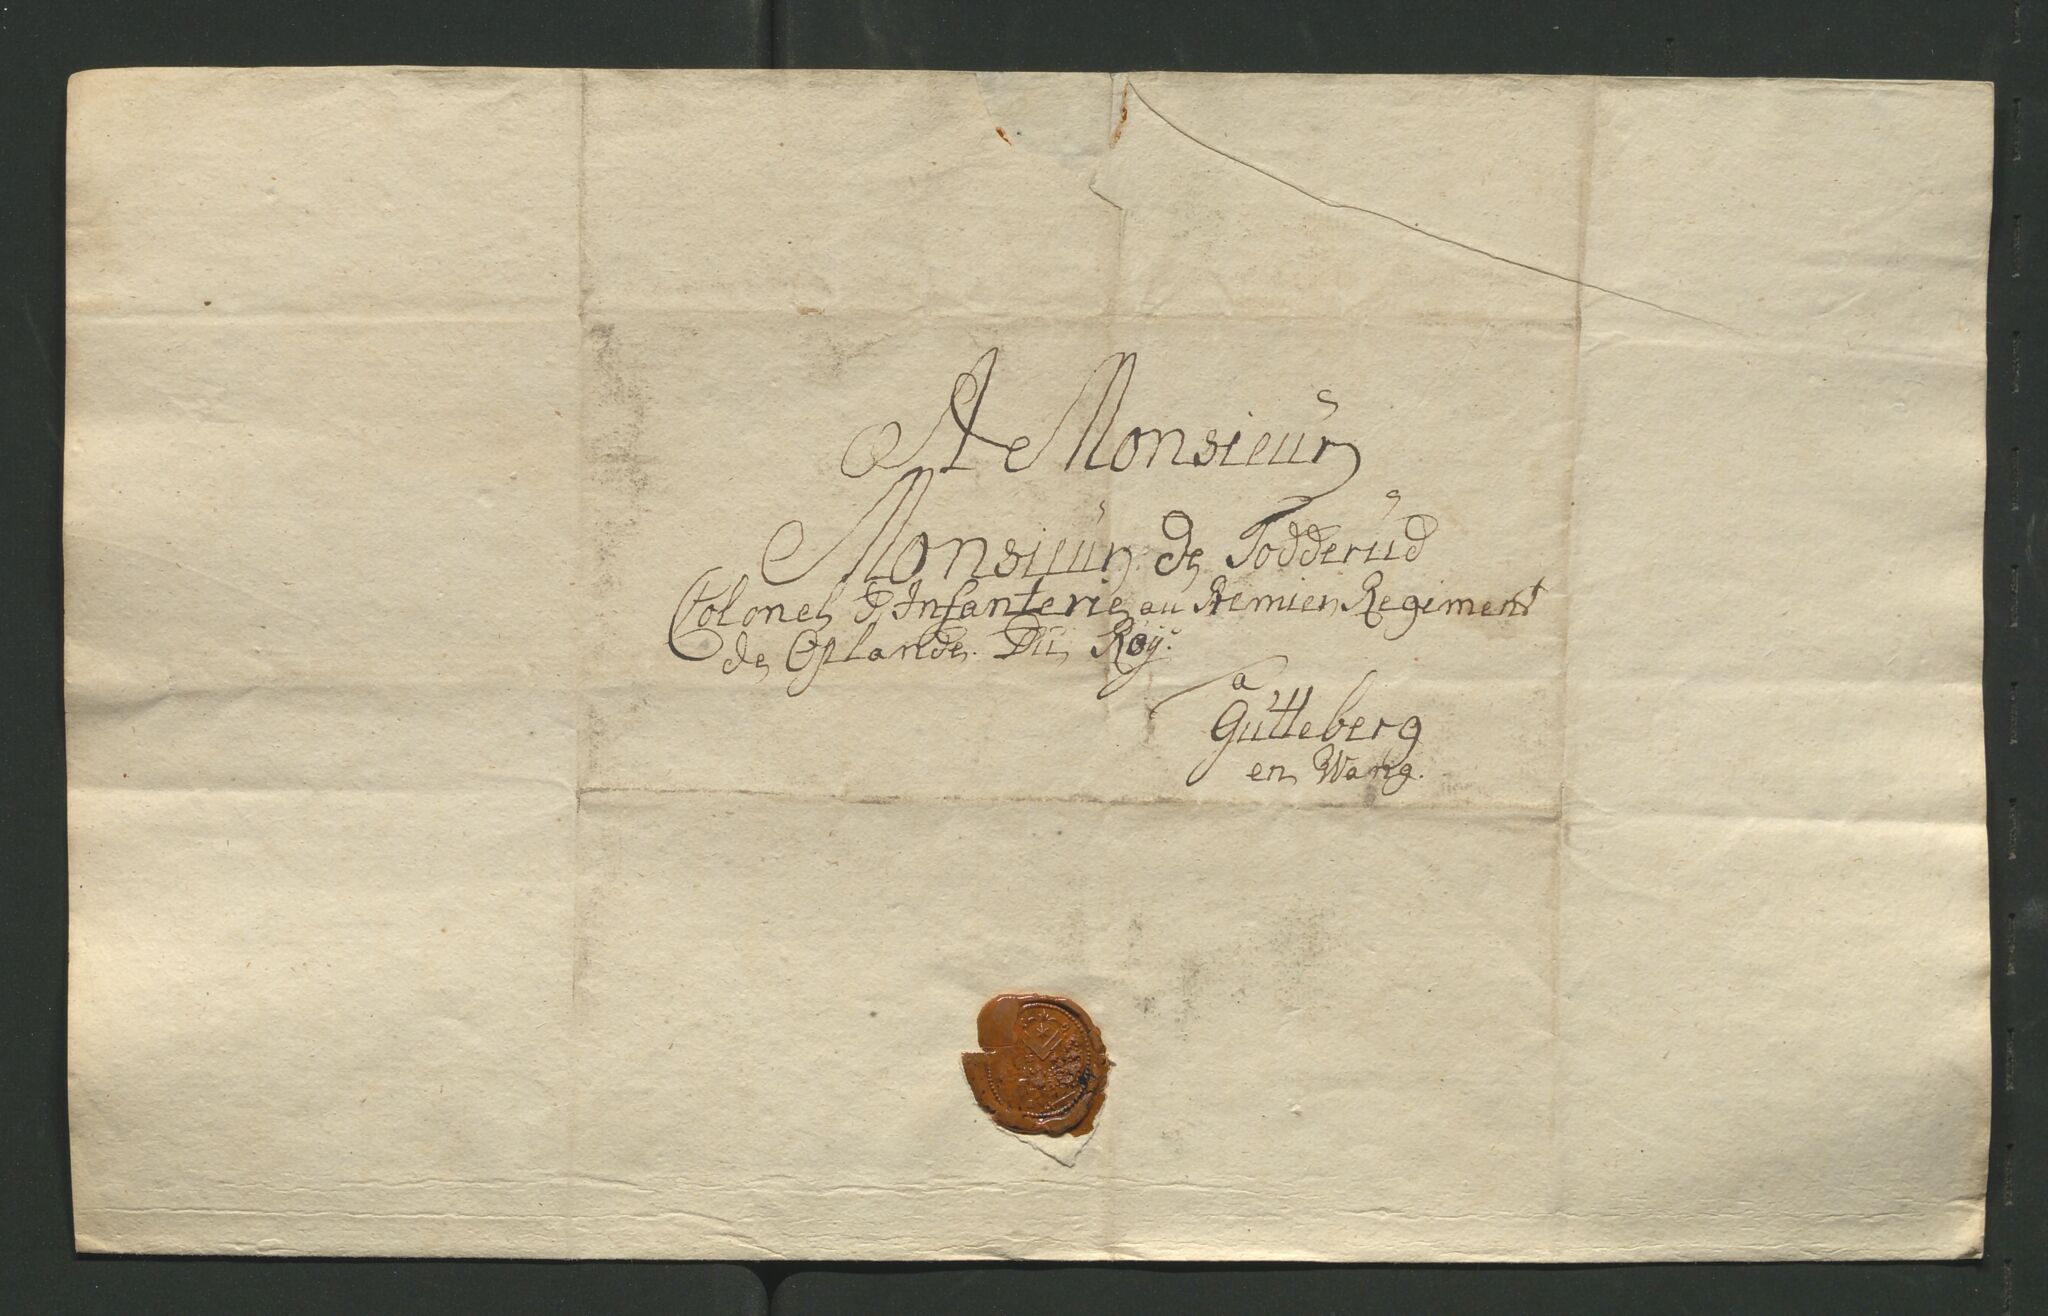 A Monsieur
Monsieur de Todderud
Colonel D'Infanterie au Premier Regiment
de Oplande. Du Roÿ.
a
Gutteberg
en Wang.